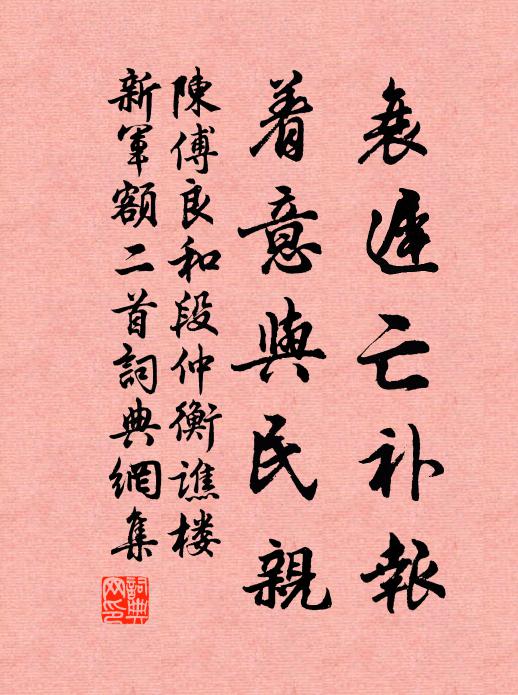 衰遲亡补報
着意與民親
陳傅良和段仲衡譙楼
新军額二首詞典網集
詞典網印